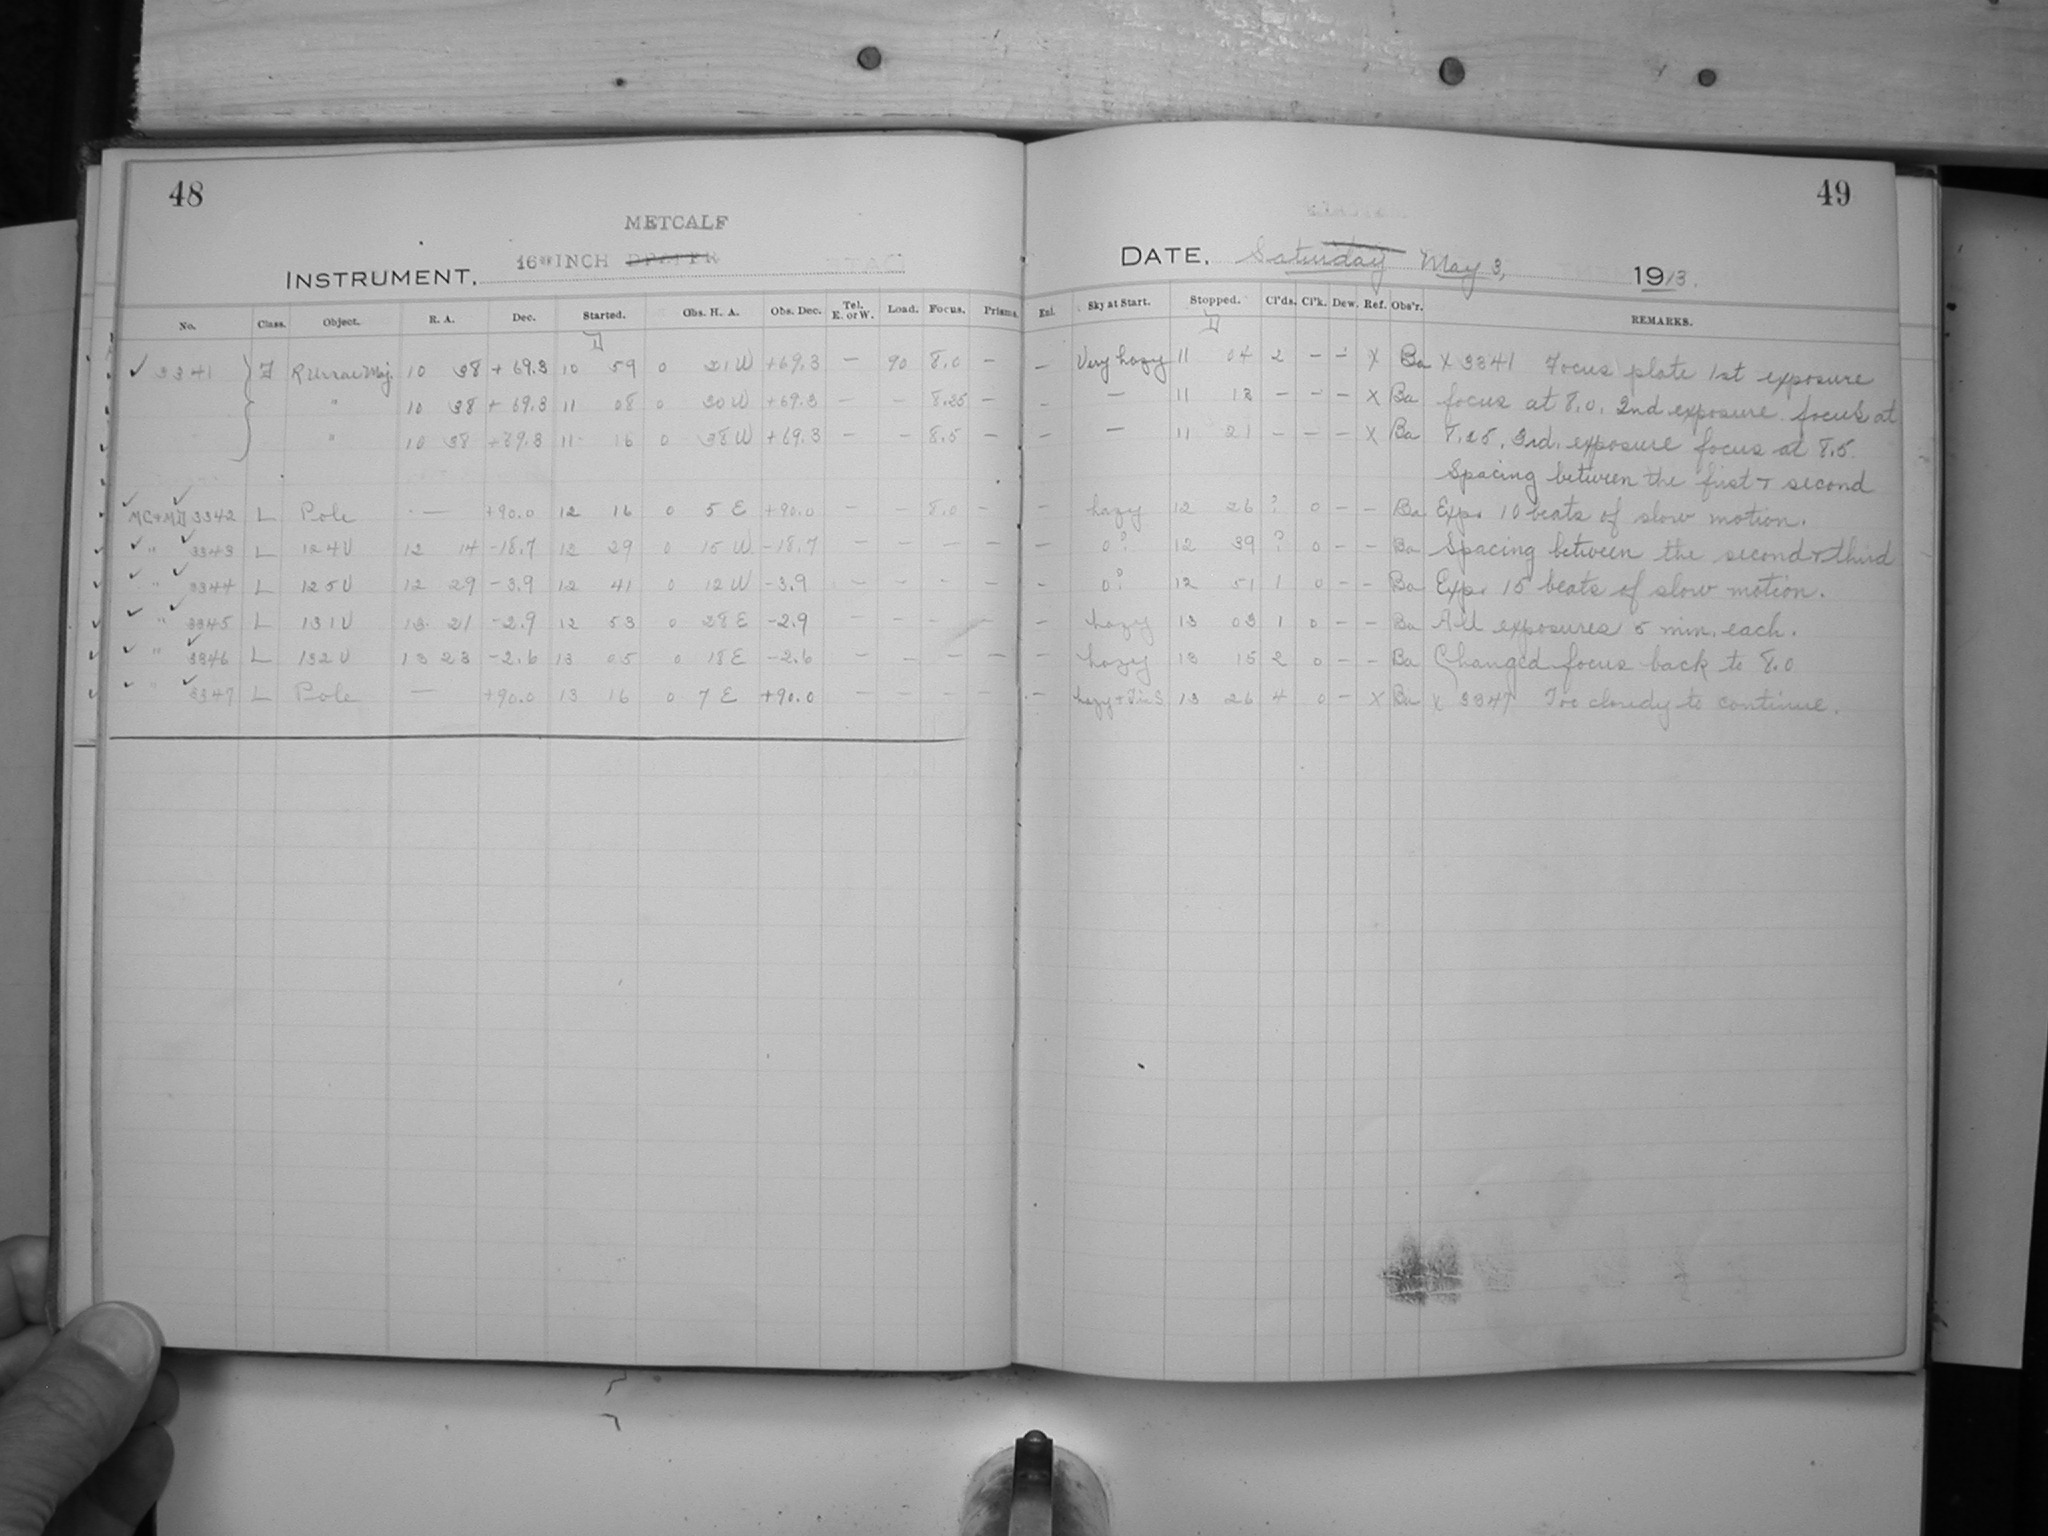 48
METCALF
INSTRUMENT. 16 INCH DRAPER
No. Class. Object. R. A. Dec. Started. Obs. H. A. Obs. Dec. Tel. E. or W. Load. Focus. Prisms.
3341 F R Ursae Maj. 10 38 + 69.3 10 59 0 21 W +69.3 — 90 8.0 —
" 10 38 + 69.3 11 08 0 30 W +69.3 — — 8.25 —
" 10 38 +69.3 11 16 0 38 W +69.3 — — 8.5 —
MC+MD 3342 L Pole — +90.0 12 16 0 5 E +90.0 — — 8.0 —
" 3343 L 124U 12 14 -18.7 12 29 0 15 W -18.7 — — — —
" 3344 L 125U 12 29 -3.9 12 41 0 12 W -3.9 — — — —
" 3345 L 131U 13 21 -2.9 12 53 0 28 E -2.9 — — — —
" 3346 L 132U 13 23 -2.6 13 05 0 18 E -2.6 — — — —
" 3347 L Pole — +90.0 13 16 0 7 E +90.0 — — — —
49
DATE. Saturday May 3, 1913.
Enl. Sky at Start. Stopped. Cl'ds. Cl'k. Dew. Ref. Obs'r. REMARKS.
— Very hazy 11 04 2 — — X Ba X 3341 Focus plate 1st exposure
— — 11 13 — — — X Ba focus at 8.0. 2nd exposure focus at
— — 11 21 — — — X Ba 8.25. 3rd. exposure focus at 8.5.
Spacing between the first + second
— hazy 12 26 ? 0 — — Ba Exp. 10 beats of slow motion.
— 0? 12 39 ? 0 — — Ba Spacing between the second + third
— 0? 12 51 1 0 — — Ba Exp. 15 beats of slow motion.
— hazy 13 03 1 0 — — Ba All exposures 5 min. each.
— hazy 13 15 2 0 — — Ba Changed focus back to 8.0
— hazy + 13 26 4 0 — X Ba X 3347 Too cloudy to continue.